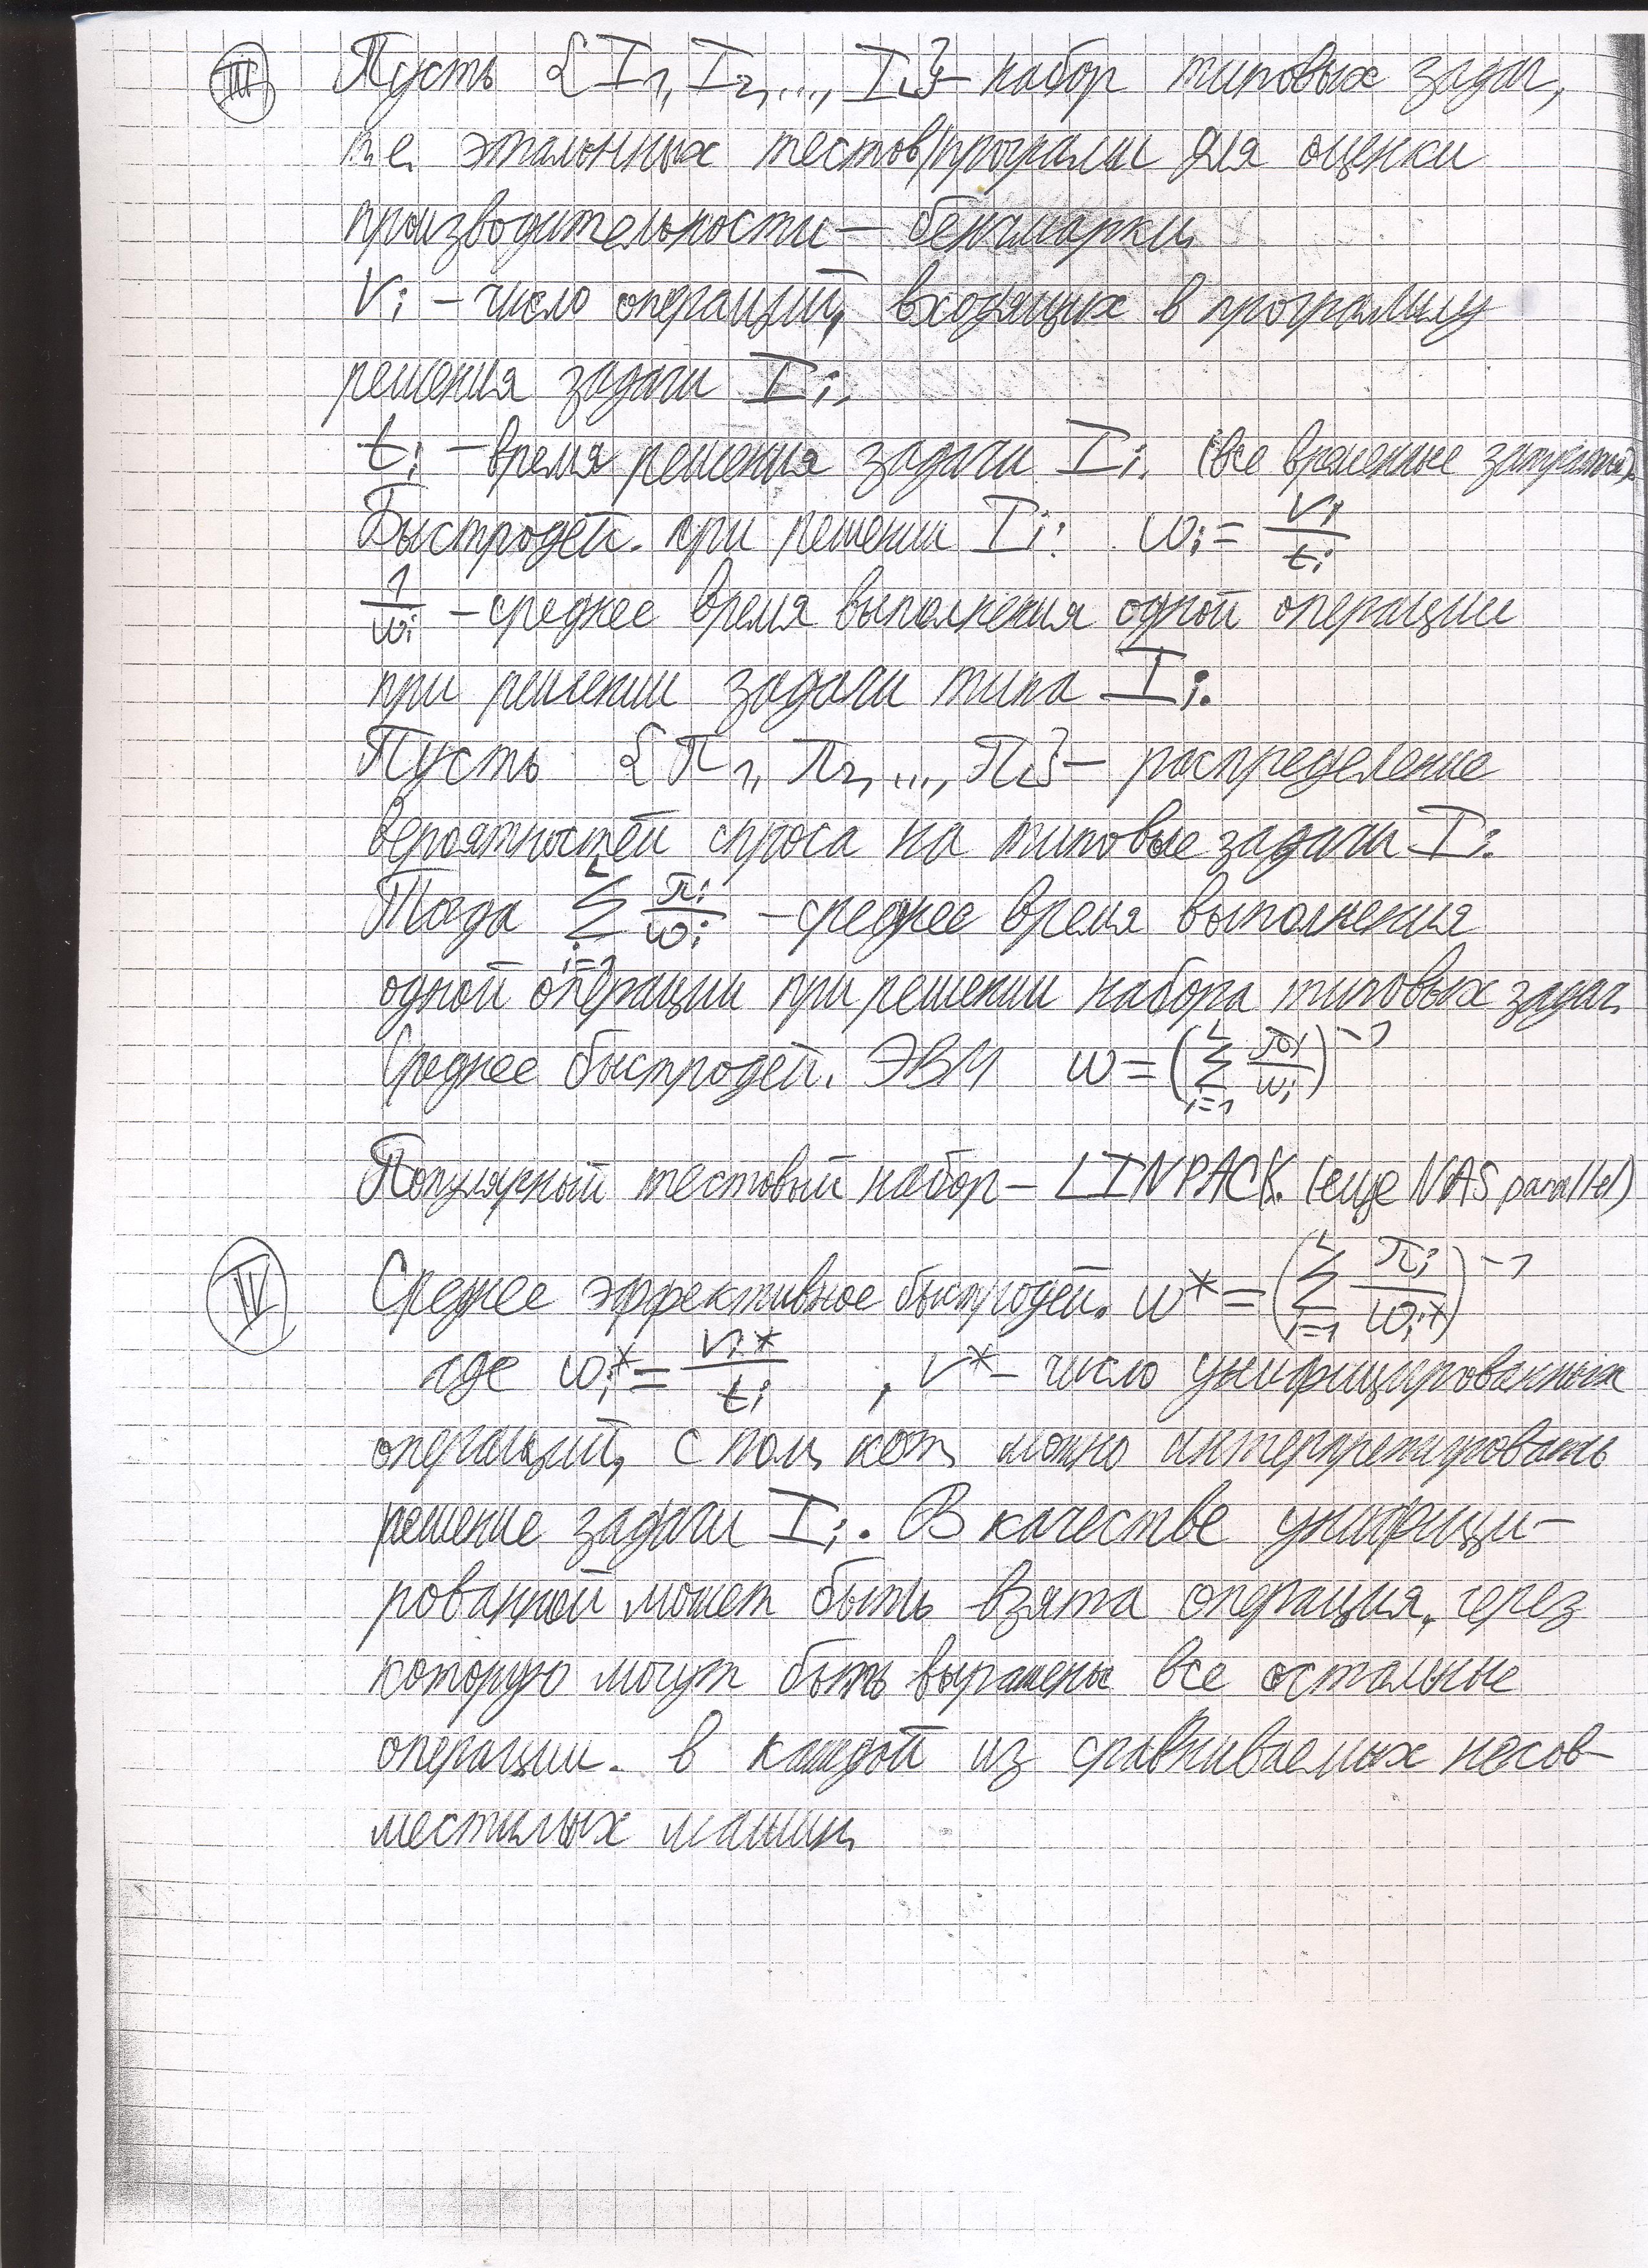 III Пусть {I1, I2, ..., IL} – набор типовых задач,
т.е. эталонных тестов/программ для оценки
производительности – бенчмарки.
Vi – число операций, входящих в программу
решения задачи Ii.
ti – время решения задачи Ii. (все временные затраты).
Быстродей. при решении Ii: ωi = Vi/ti
1/ωi – среднее время выполнения одной операции
при решении задачи типа Ii.
Пусть {π1, π2, ..., πL} – распределение
вероятностей спроса на типовые задачи Ii.
Тогда ∑_{i=1}^{L} πi/ωi – среднее время выполнения
одной операции при решении набора типовых задач.
Среднее быстродей. ЭВМ ω = (∑_{i=1}^{L} πi/ωi)^{-1}
Популярный тестовый набор – LINPACK. (еще NAS parallel)
IV Среднее эффективное быстродей. ω* = (∑_{i=1}^{L} πi/ωi*)^{-1}
где ωi* = Vi*/ti , V* – число унифицированных
операций, с пом. кот. можно интерпретировать
решение задачи Ii. В качестве унифици-
рованной может быть взята операция, через
которую могут быть выражены все остальные
операции. в каждой из сравниваемых несов-
местимых машин.